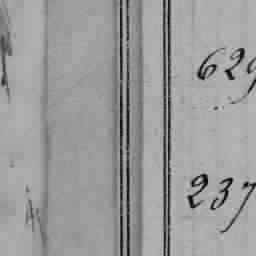 629
237